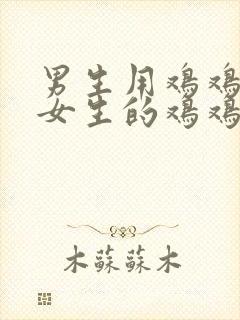 男生用鸡鸡
女生的鸡鸡
木蘇蘇木